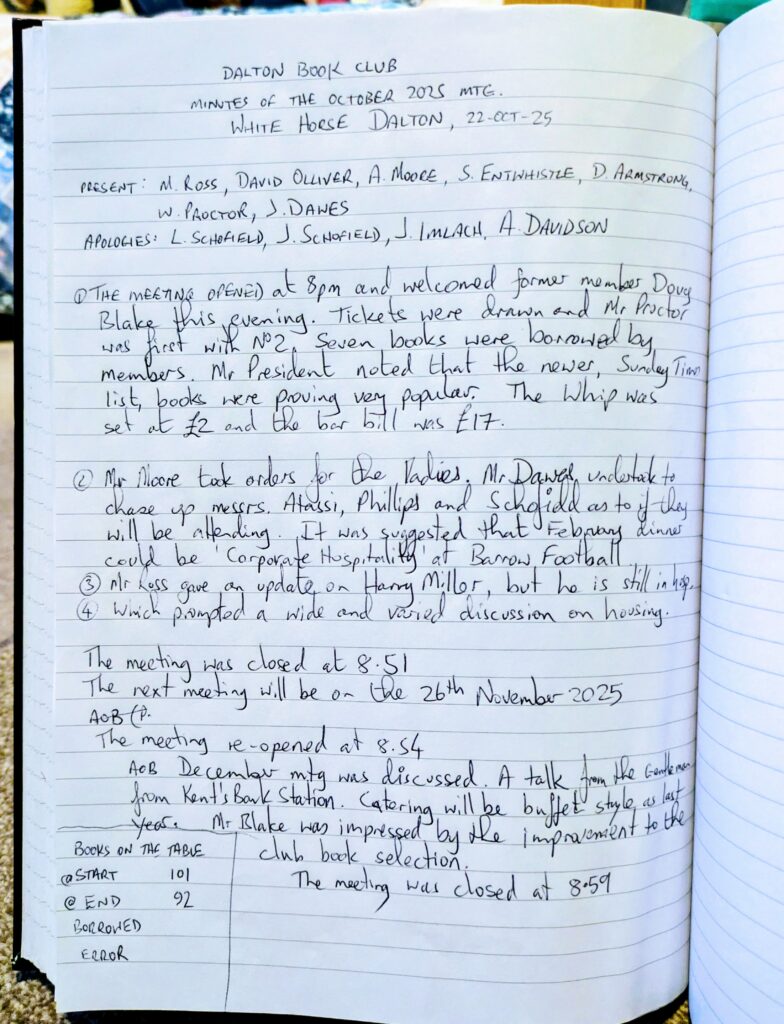 DALTON BOOK CLUB
MINUTES OF THE OCTOBER 2025 MTG.
WHITE HORSE DALTON, 22-OCT-25
PRESENT: M. ROSS, DAVID OLLIVER, A. MOORE, S. ENTWHISTLE, D. ARMSTRONG,
W. PROCTOR, J. DAWES
APOLOGIES: L. SCHOFIELD, J. SCHOFIELD, J. IMLACH, A. DAVIDSON
① THE MEETING OPENED at 8pm and welcomed former member Doug
Blake this evening. Tickets were drawn and Mr Proctor
was first with Nº2. Seven books were borrowed by
members. Mr President noted that the newer, Sunday Times
list, books were proving very popular. The Whip was
set at £2 and the bar bill was £17.
② Mr Moore took orders for the Ladies. Mr Dawes undertook to
chase up messrs. Atassi, Phillips and Schofield as to if they
will be attending. It was suggested that February dinner
could be 'Corporate Hospitality' at Barrow Football
③ Mr Ross gave an update on Harry Miller, but he is still in hosp.
④ Which prompted a wide and varied discussion on housing.
The meeting was closed at 8.51
The next meeting will be on the 26th November 2025
AOB
The meeting re-opened at 8.54
AOB December mtg was discussed. A talk from the Gentleman
from Kent's Bank Station. Catering will be buffet style as last
year. Mr Blake was impressed by the improvement to the
club book selection.
The meeting was closed at 8.59
BOOKS ON THE TABLE
@ START 101
@ END 92
BORROWED
ERROR